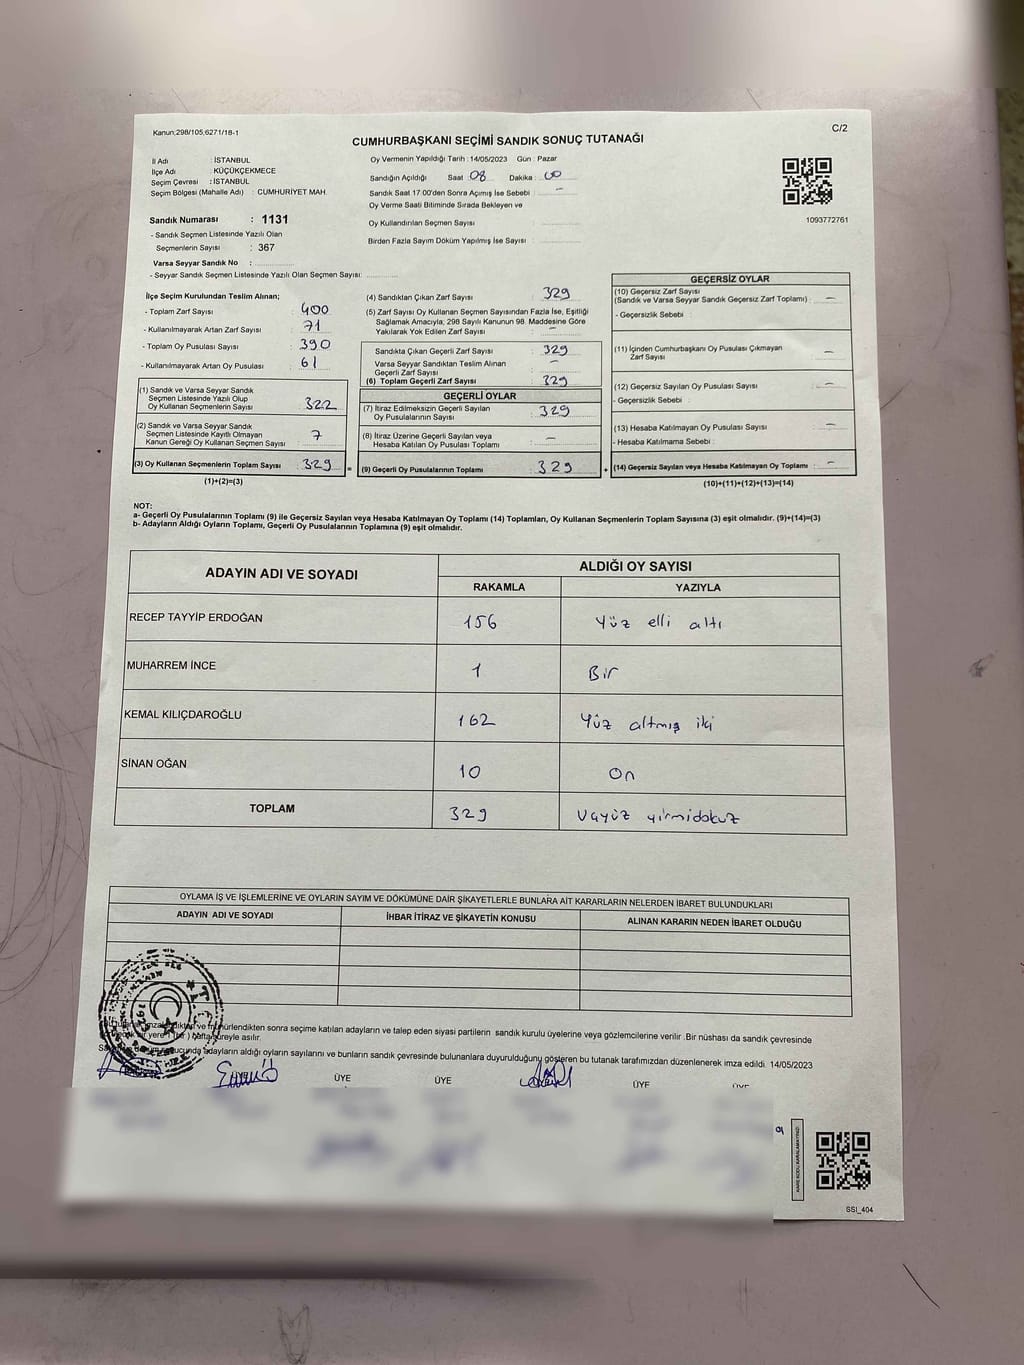 Kanun;298/105,6271/18-1
C/2
CUMHURBAŞKANI SEÇİMİ SANDIK SONUÇ TUTANAĞI
İl Adı : İSTANBUL
İlçe Adı : KÜÇÜKÇEKMECE
Seçim Çevresi : İSTANBUL
Seçim Bölgesi (Mahalle Adı) : CUMHURİYET MAH.
Oy Vermenin Yapıldığı Tarih : 14/05/2023 Gün : Pazar
Sandığın Açıldığı Saat : 08 Dakika : 00
Sandık Saat 17.00'den Sonra Açımış İse Sebebi : —
Oy Verme Saati Bitiminde Sırada Bekleyen ve
Oy Kullandırılan Seçmen Sayısı :
Birden Fazla Sayım Döküm Yapılmış İse Sayısı :
1093772761
Sandık Numarası : 1131
- Sandık Seçmen Listesinde Yazılı Olan
Seçmenlerin Sayısı : 367
Varsa Seyyar Sandık No :
- Seyyar Sandık Seçmen Listesinde Yazılı Olan Seçmen Sayısı:
İlçe Seçim Kurulundan Teslim Alınan;
- Toplam Zarf Sayısı : 400
- Kullanılmayarak Artan Zarf Sayısı : 71
- Toplam Oy Pusulası Sayısı : 390
- Kullanılmayarak Artan Oy Pusulası : 61
(1) Sandık ve Varsa Seyyar Sandık
Seçmen Listesinde Yazılı Olup
Oy Kullanan Seçmenlerin Sayısı : 322
(2) Sandık ve Varsa Seyyar Sandık
Seçmen Listesinde Kayıtlı Olmayan
Kanun Gereği Oy Kullanan Seçmen Sayısı : 7
(3) Oy Kullanan Seçmenlerin Toplam Sayısı : 329
(1)+(2)=(3)
(4) Sandıktan Çıkan Zarf Sayısı : 329
(5) Zarf Sayısı Oy Kullanan Seçmen Sayısından Fazla İse, Eşitliği
Sağlamak Amacıyla, 298 Sayılı Kanunun 98. Maddesine Göre
Yakılarak Yok Edilen Zarf Sayısı : —
Sandıkta Çıkan Geçerli Zarf Sayısı : 329
Varsa Seyyar Sandıktan Teslim Alınan
Geçerli Zarf Sayısı : —
(6) Toplam Geçerli Zarf Sayısı : 329
GEÇERLİ OYLAR
(7) İtiraz Edilmeksizin Geçerli Sayılan
Oy Pusulalarının Sayısı : 329
(8) İtiraz Üzerine Geçerli Sayılan veya
Hesaba Katılan Oy Pusulası Toplamı : —
= (9) Geçerli Oy Pusulalarının Toplamı : 329
GEÇERSİZ OYLAR
(10) Geçersiz Zarf Sayısı
(Sandık ve Varsa Seyyar Sandık Geçersiz Zarf Toplamı) : —
- Geçersizlik Sebebi :
(11) İçinden Cumhurbaşkanı Oy Pusulası Çıkmayan
Zarf Sayısı : —
(12) Geçersiz Sayılan Oy Pusulası Sayısı : —
- Geçersizlik Sebebi :
(13) Hesaba Katılmayan Oy Pusulası Sayısı : —
- Hesaba Katılmama Sebebi :
+ (14) Geçersiz Sayılan veya Hesaba Katılmayan Oy Toplamı : —
(10)+(11)+(12)+(13)=(14)
NOT:
a- Geçerli Oy Pusulalarının Toplamı (9) ile Geçersiz Sayılan veya Hesaba Katılmayan Oy Toplamı (14) Toplamları, Oy Kullanan Seçmenlerin Toplam Sayısına (3) eşit olmalıdır. (9)+(14)=(3)
b- Adayların Aldığı Oyların Toplamı, Geçerli Oy Pusulalarının Toplamına (9) eşit olmalıdır.
ADAYIN ADI VE SOYADI
ALDIĞI OY SAYISI
RAKAMLA YAZIYLA
RECEP TAYYİP ERDOĞAN 156 Yüz elli altı
MUHARREM İNCE 1 Bir
KEMAL KILIÇDAROĞLU 162 Yüz altmış iki
SİNAN OĞAN 10 On
TOPLAM 329 yirmidokuz
OYLAMA İŞ VE İŞLEMLERİNE VE OYLARIN SAYIM VE DÖKÜMÜNE DAİR ŞİKAYETLERLE BUNLARA AİT KARARLARIN NELERDEN İBARET BULUNDUKLARI
ADAYIN ADI VE SOYADI İHBAR İTİRAZ VE ŞİKAYETİN KONUSU ALINAN KARARIN NEDEN İBARET OLDUĞU
ve mühürlendikten sonra seçime katılan adayların ve talep eden siyasi partilerin sandık kurulu üyelerine veya gözlemcilerine verilir .Bir nüshası da sandık çevresinde
bir yere hafta süreyle asılır.
adayların aldığı oyların sayılarını ve bunların sandık çevresinde bulunanlara duyurulduğunu gösteren bu tutanak tarafımızdan düzenlenerek imza edildi. 14/05/2023
ÜYE ÜYE ÜYE
KARE KODU KARALAMAYINIZ!
SSI_404